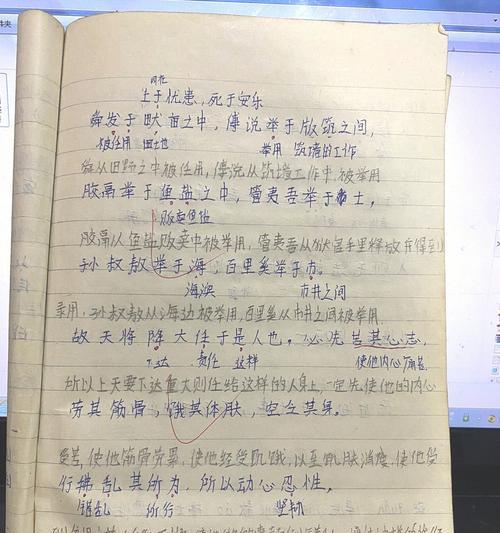 生于忧患，死于安乐
舜发于畎亩之中，傅说举于版筑之间，
被任用 田地 举用 筑墙的工作
舜从田野之中被任用，傅说从筑墙工作中被举用
胶鬲举于鱼盐之中，管夷吾举于士，
贩卖鱼盐
胶鬲从鱼盐贩卖中被举用，管夷吾从狱官手里释放后得到
孙叔敖举于海，百里奚举于市。
海滨 市井之间
录用，孙叔敖从海边被举用，百里奚从市井之间被举用
故天将降大任于是人也，必先苦其心志，
下达 责任 这样 使他内心痛苦
所以上天要下达重大则任给这样的人身上，一定先使他的内心
劳其筋骨，饿其体肤，空乏其身。
受苦，使他筋骨劳累，使他经受饥饿，以至肌肤消瘦，使他受
行拂乱其所为，所以动心忍性。
错乱 所行 坚韧